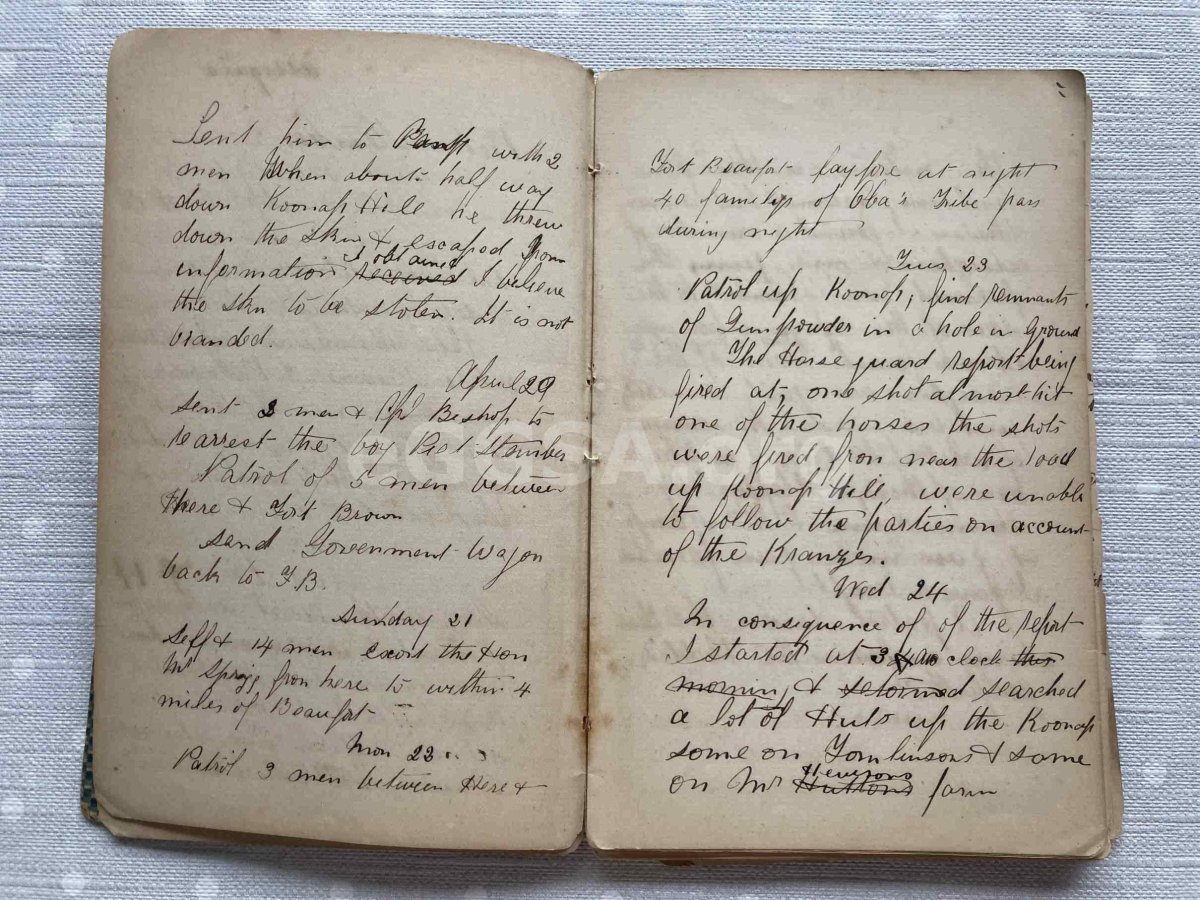 Sent him to with 2
men When about half way
down Koonap Hill he threw
down the skin & escaped From
information I obtained received I believe
the skin to be stolen. It is not
branded.
April 20
Sent 2 men & Cpl Bishop to
rearrest the boy Piet Stember
Patrol of 5 men between
Here & Fort Brown
Send Government Wagon
back to F.B.
Sunday 21
Self & 14 men escort the Hon
Mr Sprigg from here to within 4
miles of Beaufort
Mon 22
Patrol 3 men between Here &
Fort Beaufort at night
40 familys of Oba's Tribe pass
during night
Tues 23
Patrol up Koonap, find remnants
of Gunpowder in a hole in Ground
The Horse guard report being
fired at, one shot almost hit
one of the horses the shots
were fired from near the road
up Koonap Hill, were unable
to follow the parties on account
of the Kranzes.
Wed 24
In consequence of of the report
I started at 3 o clock this
morning & returned searched
a lot of Huts up the Koonap
some on Tomlinsons & some
on Mr Huttons Hewsons farm
eGGSA.org